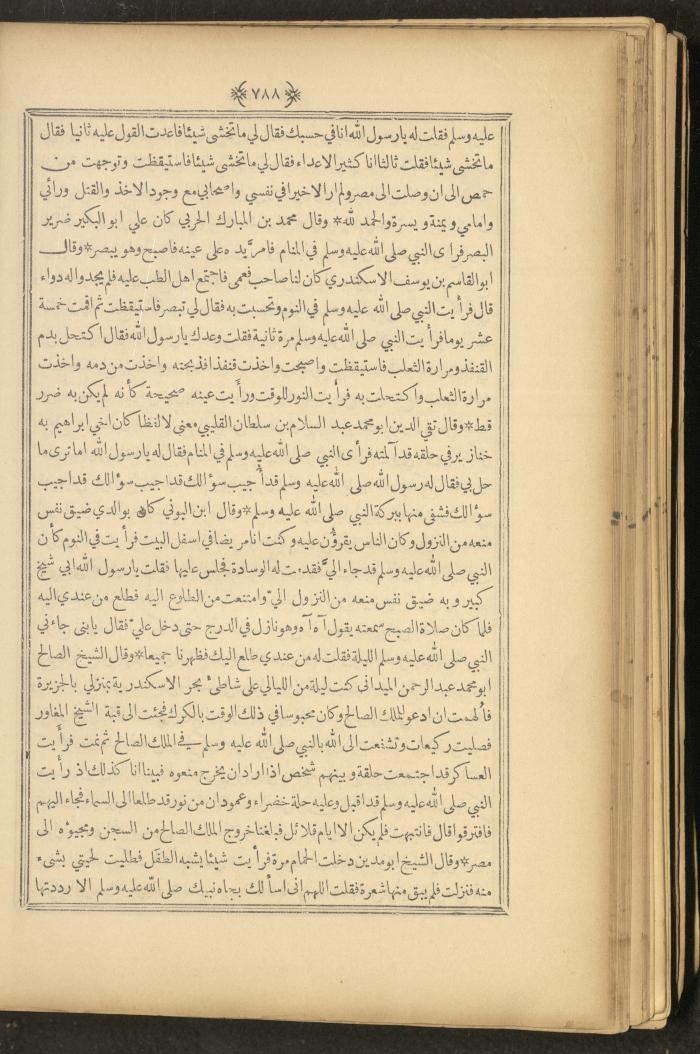 ﴿٧٨٨﴾
عليه وسلم فقلت له يارسول الله انا في حسبك فقال لي ماتخشى شيئا فاعدت القول عليه ثانيا فقال
ماتخشى شيئا فقلت ثالثا انا كثير الاعداء فقال لي ماتخشى شيئا فاستيقظت وتوجهت من
حمص الى ان وصلت الى مصر ولم ار الا خيرا في نفسي واصحابي مع وجود الاخذ والقتل ورائي
وامامي ويمنة ويسرة والحمد لله * وقال محمد بن المبارك الحربي كان علي ابو البكير ضرير
البصر فرأى النبي صلى الله عليه وسلم في المنام فامر يده على عينه فاصبح وهو يبصر * وقال
ابو القاسم بن يوسف الاسكندري كان لنا صاحب فعمى فاجتمع اهل الطب عليه فلم يجدوا له دواء
قال فرأيت النبي صلى الله عليه وسلم في النوم وتحسبت به فقال لي تبصر فاستيقظت ثم اقمت خمسة
عشر يوما فرأيت النبي صلى الله عليه وسلم مرة ثانية فقلت وعدك يارسول الله فقال اكتحل بدم
القنفذ ومرارة الثعلب فاستيقظت واصبحت واخذت قنفذا فذبحته واخذت من دمه واخذت
مرارة الثعلب واكتحلت به فرأيت النور للوقت ورأيت عينه صحيحة كأنه لم يكن به ضرر
قط * وقال تقي الدين ابو محمد عبد السلام بن سلطان القليبي معنى لا لفظا كان اخي ابراهيم به
خنازير في حلقه قد آلمته فرأى النبي صلى الله عليه وسلم في المنام فقال له يارسول الله اما ترى ما
حل بي فقال له رسول الله صلى الله عليه وسلم قد أجيب سؤالك قد اجيب سؤالك قد اجيب
سؤالك فشفى منها ببركة النبي صلى الله عليه وسلم * وقال ابن البوني كان بوالدي ضيق نفس
منعه من النزول وكان الناس يقرؤن عليه وكنت انا مريضا في اسفل البيت فرأيت في النوم كأن
النبي صلى الله عليه وسلم قد جاء اليَّ فقدمت له الوسادة فجلس عليها فقلت يارسول الله ابي شيخ
كبير وبه ضيق نفس منعه من النزول اليّ وامتنعت من الطلوع اليه فطلع من عندي اليه
فلما كان صلاة الصبح سمعته يقول آه آه وهو نازل في الدرج حتى دخل عليّ فقال يا بنى جاءني
النبي صلى الله عليه وسلم الليلة فقلت له من عندي طلع اليك فظهرنا جميعا * وقال الشيخ الصالح
ابو محمد عبد الرحمن الميداني كنت ليلة من الليالي على شاطئ بحر الاسكندرية بمنزلي بالجزيرة
فألهمت ان ادعو للملك الصالح وكان محبوسا في ذلك الوقت بالكرك فجئت الى قبة الشيخ المغاور
فصليت ركيعات وتشفعت الى الله بالنبي صلى الله عليه وسلم في الملك الصالح ثم نمت فرأيت
العساكر قد اجتمعت حلقة وبينهم شخص اذا اراد ان يخرج منعوه فبينا انا كذلك اذ رأيت
النبي صلى الله عليه وسلم قد اقبل وعليه حلة خضراء وعمودان من نور قد طلعا الى السماء فجاء اليهم
فافترقوا قال فانتبهت فلم يكن الا ايام قلائل فبلغنا خروج الملك الصالح من السجن ومجيؤه الى
مصر * وقال الشيخ ابو مدين دخلت الحمام مرة فرأيت شيئا يشبه الطَّفَل فطليت لحيتي بشيء
منه فنزلت فلم يبق منها شعرة فقلت اللهم انى اسألك بجاه نبيك صلى الله عليه وسلم الا رددتها